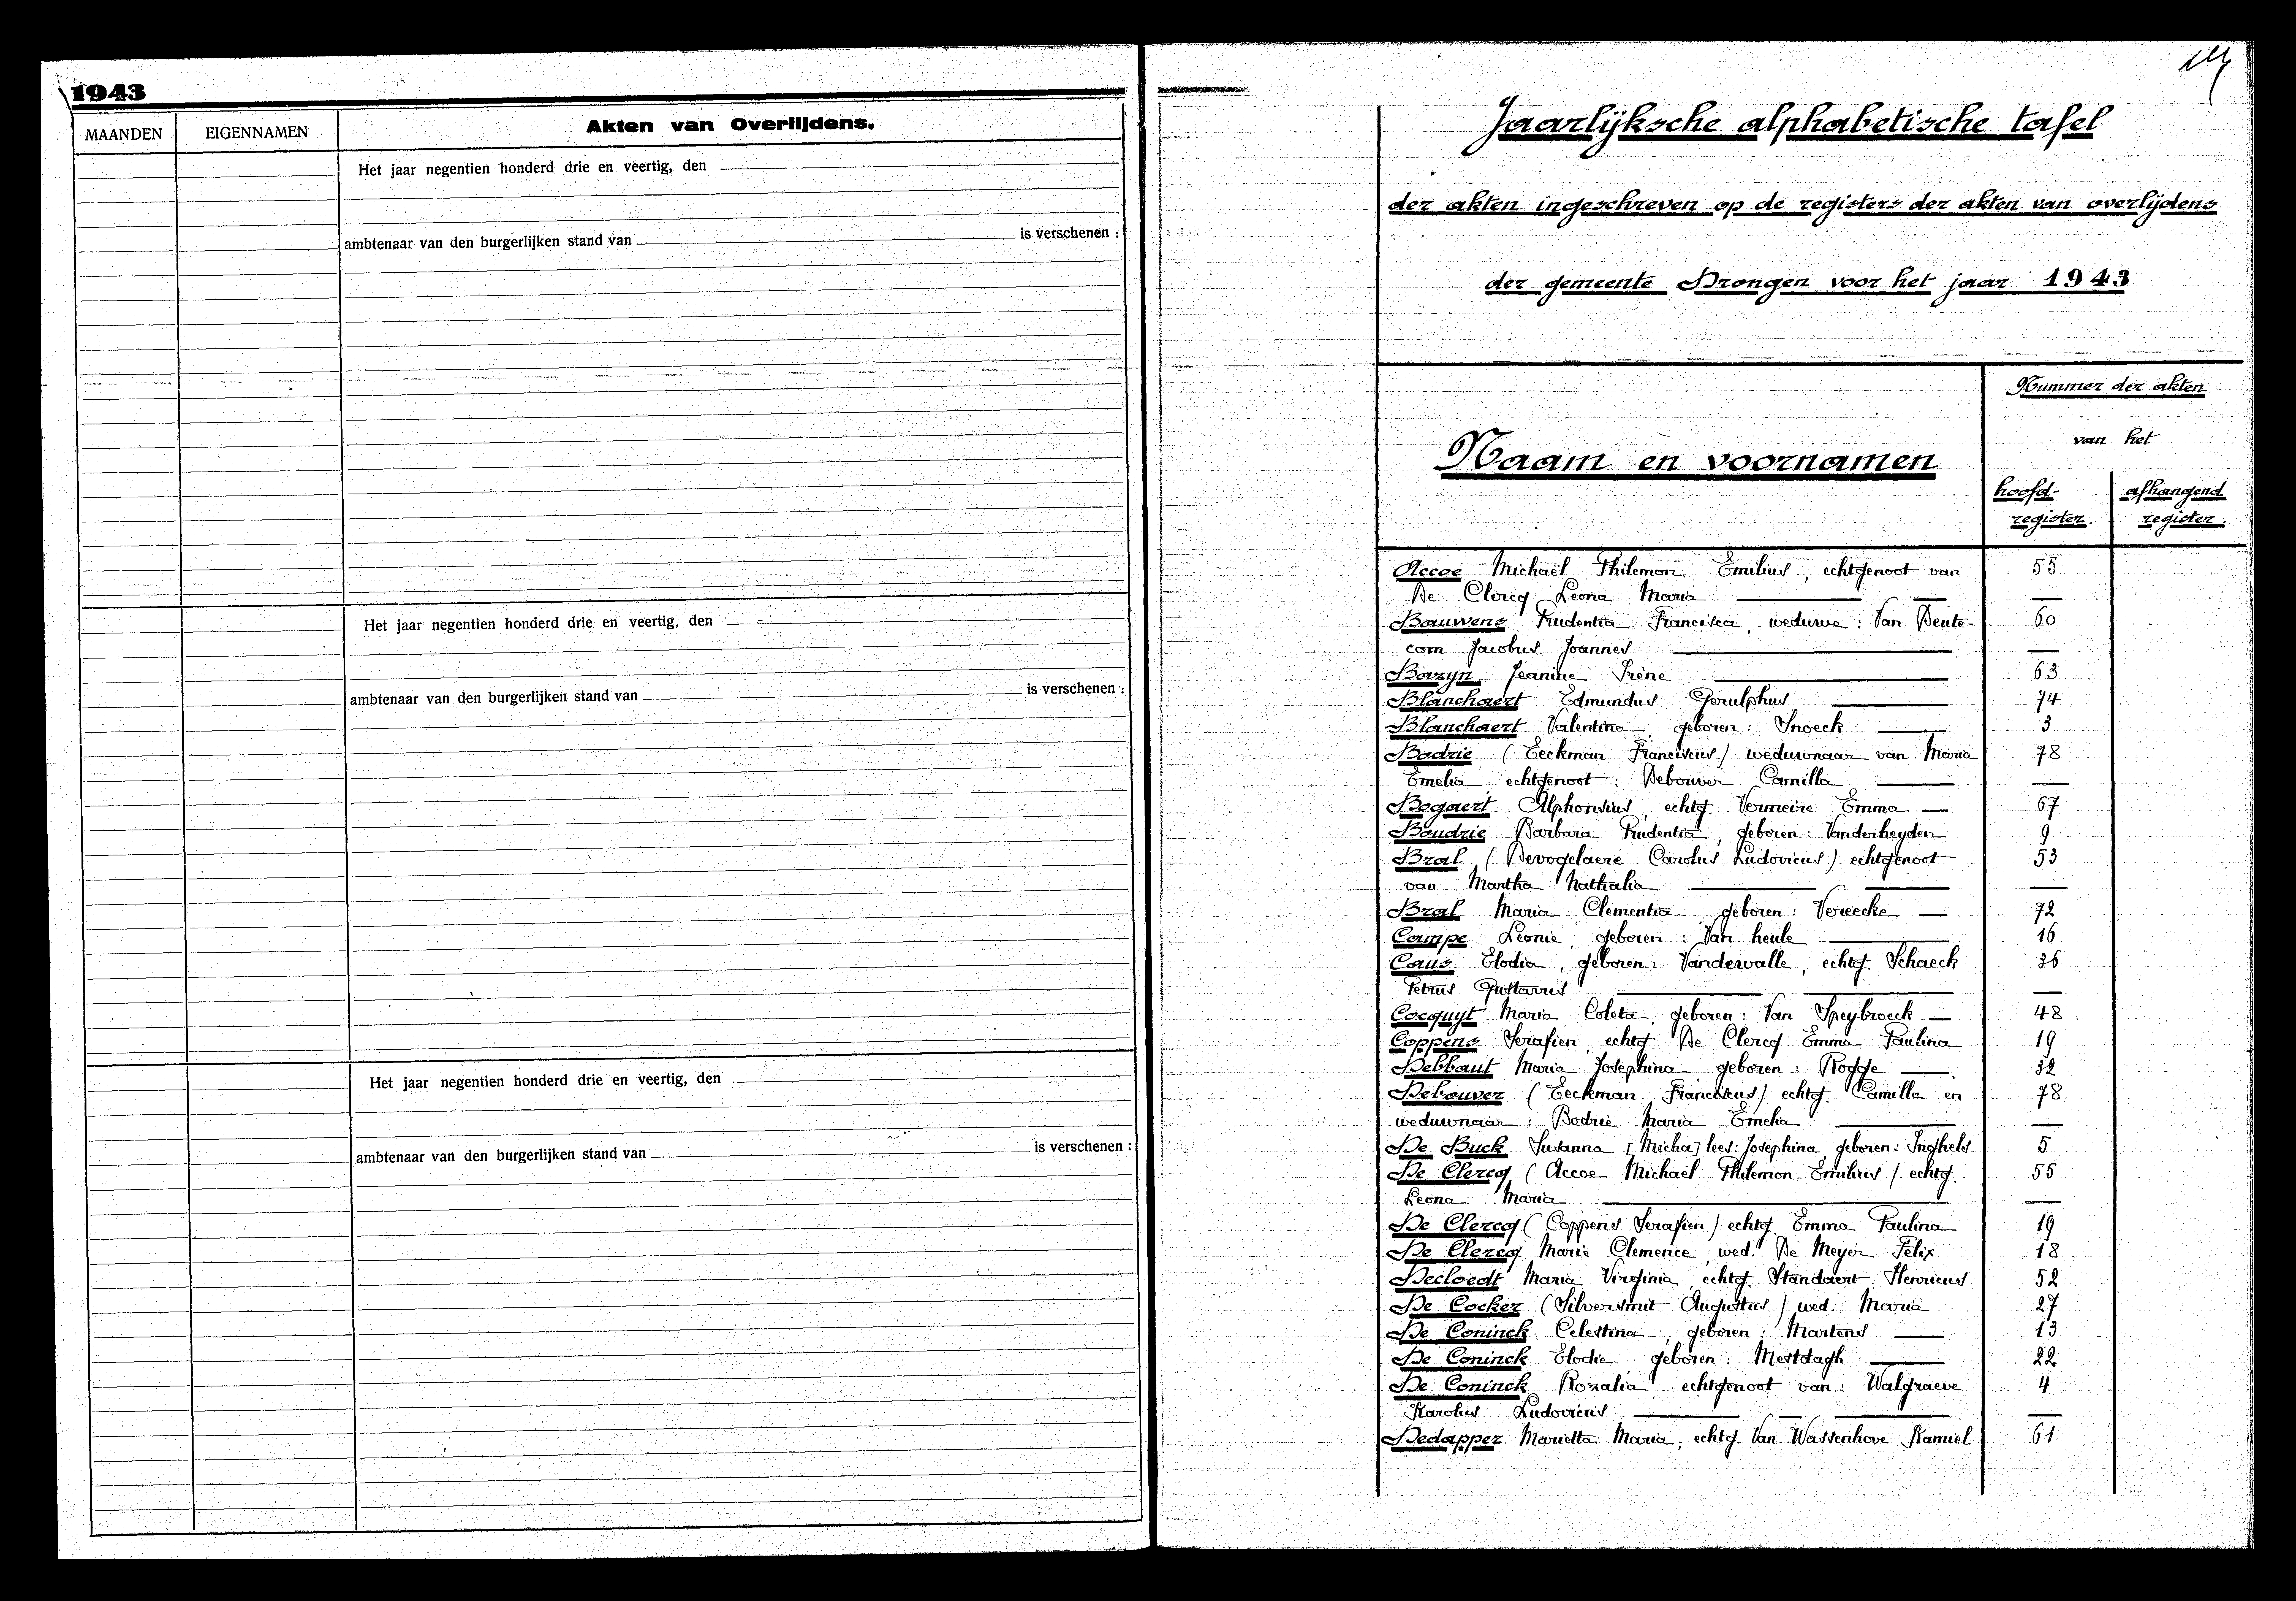 1943
MAANDEN
EIGENNAMEN
Akten van Overlijdens.
Het jaar negentien honderd drie en veertig, den
ambtenaar van den burgerlijken stand van is verschenen :
Het jaar negentien honderd drie en veertig, den
ambtenaar van den burgerlijken stand van is verschenen :
Het jaar negentien honderd drie en veertig, den
ambtenaar van den burgerlijken stand van is verschenen :
Jaarlijksche alphabetische tafel
der akten ingeschreven op de registers der akten van overlijdens
der gemeente Drongen voor het jaar 1943
Naam en voornamen
Nummer der akten
van het
hoofd-
register.
afhangend
register.
Accoe Michaël Philemon Emilius, echtgenoot van 55
De Clercq Leona Maria
Bauwens Prudentia Francisca, weduwe : Van Deute- 60
com Jacobus Joannes
Bazyn Jeanine Irène 63
Blanchaert Edmundus Gerulphus 74
Blanchaert Valentina, geboren : Snoeck 3
Bodrie (Eeckman Franciscus) weduwnaar van Maria 78
Emelia echtgenoot : Debouver Camilla
Bogaert Alphonsius, echtg. Vermeire Emma 67
Boudrie Barbara Prudentia, geboren : Vanderheyden 9
Bral (Devogelaere Carolus Ludovicus) echtgenoot 53
van Martha Nathalia
Bral Maria Clementia geboren : Vereecke 72
Campe Leonie, geboren : Van heule 16
Caus Elodia, geboren : Vandewalle, echtg. Schaeck 36
Petrus Gustavus
Cocquyt Maria Coleta, geboren : Van Speybroeck 48
Coppens Serafien, echtg. De Clercq Emma Paulina 19
Debbaut Maria Josephina geboren : Rogge 32
Debouver (Eeckman Franciscus) echtg. Camilla en 78
weduwnaar : Bodrie Maria Emelia
De Buck Susanna [Micha] lees : Josephina geboren : Inghels 5
De Clercq (Accoe Michaël Philemon Emilius) echtg. 55
Leona Maria
De Clercq (Coppens Serafien) echtg. Emma Paulina 19
De Clercq Marie Clemence, wed. De Meyer Felix 18
Decloedt Maria Virginia, echtg. Standaert Henricus 52
De Cocker (Silversmit Augustus) wed. Maria 27
De Coninck Celestina, geboren : Martens 13
De Coninck Elodie geboren : Mestdagh 22
De Coninck Rozalia echtgenoot van : Walgraeve 4
Karolus Ludovicus
Dedapper Marietta Maria, echtg. Van Wassenhove Kamiel 61